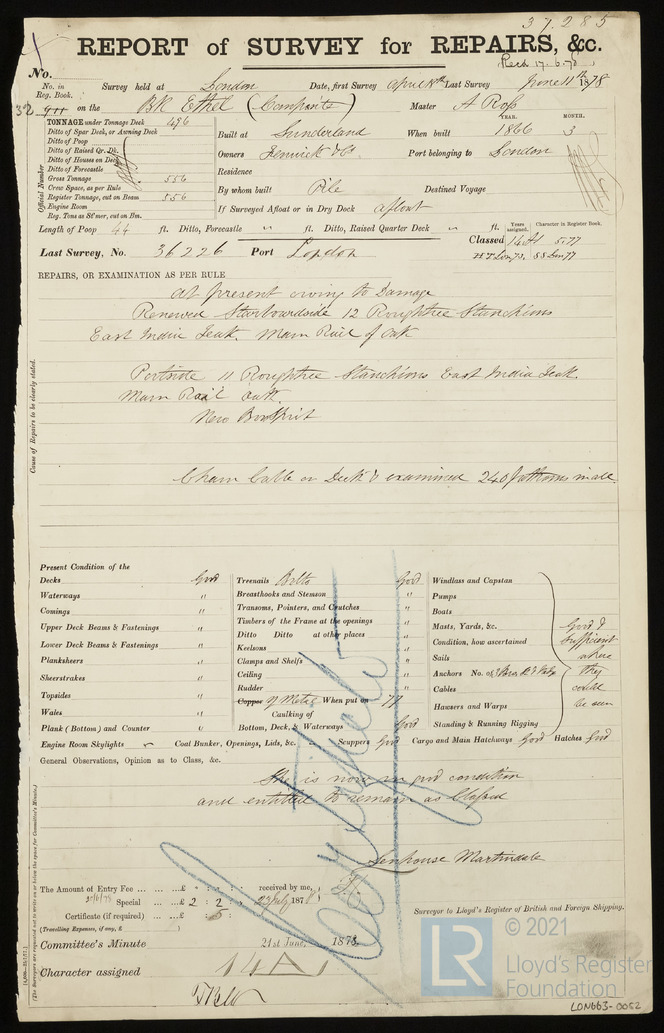 37.285
REPORT of SURVEY for REPAIRS, &c.
Recd 17.6.78
No.
No. in Reg. Book.
Survey held at London Date, first Survey April 8th Last Survey June 11th 1878
32 911 on the BK Ethel (Composite) Master A Ross
TONNAGE under Tonnage Deck 496
Ditto of Spar Deck, or Awning Deck
Ditto of Poop
Ditto of Raised Qr. Dk.
Ditto of Houses on Deck
Ditto of Forecastle
Gross Tonnage 556
Crew Space, as per Rule
Register Tonnage, cut on Beam 556
Engine Room
Reg. Tons as St'mer, cut on Bm.
Official Number
Built at Sunderland When built YEAR. 1866 MONTH. 3
Owners Fenwick & Co Port belonging to London
Residence
By whom built Pile Destined Voyage
If Surveyed Afloat or in Dry Dock afloat
Length of Poop 44 ft. Ditto, Forecastle " ft. Ditto, Raised Quarter Deck " ft.
Years assigned. Character in Register Book.
Classed 14 A1 5.77
Last Survey, No. 36226 Port London
REPAIRS, OR EXAMINATION AS PER RULE
Cause of Repairs to be clearly stated.
At present owing to Damage
Renewed Starboardside 12 Roughtree Stanchions
East India Teak. Main Rail of Oak
Portside 11 Roughtree Stanchions East India Teak
Main Rail Oak.
New Bowsprit
Chain Cable on Deck & examined 240 fathoms in all
Present Condition of the
Decks Good
Waterways "
Comings "
Upper Deck Beams & Fastenings "
Lower Deck Beams & Fastenings "
Planksheers "
Sheerstrakes "
Topsides "
Wales "
Plank (Bottom) and Counter "
Treenails Bolts Good
Breasthooks and Stemson "
Transoms, Pointers, and Crutches "
Timbers of the Frame at the openings "
Ditto Ditto at other places "
Keelsons "
Clamps and Shelfs "
Ceiling "
Rudder "
Copper Y Metal When put on 77
Caulking of
Bottom, Deck, & Waterways Good
Windlass and Capstan
Pumps
Boats
Masts, Yards, &c.
Condition, how ascertained
Sails
Anchors No. of
Cables
Hawsers and Warps
Standing & Running Rigging
Good &
Sufficient
where
they
could
be seen
Engine Room Skylights Coal Bunker, Openings, Lids, &c. Scuppers Good Cargo and Main Hatchways Good Hatches Good
General Observations, Opinion as to Class, &c.
She is now in good condition
and entitled to remain as Classed
Senhouse Martindale
Surveyor to Lloyd's Register of British and Foreign Shipping.
The Amount of Entry Fee ... £ : : received by me,
Special ... £ 2 : 2 : 23 July 1878
Certificate (if required) ... £ : 5 :
(Travelling Expenses, if any, £ )
Committee's Minute 21st June, 1878.
Character assigned 14 A 1
© 2021
LR
Lloyd's Register
Foundation
LON663-0052